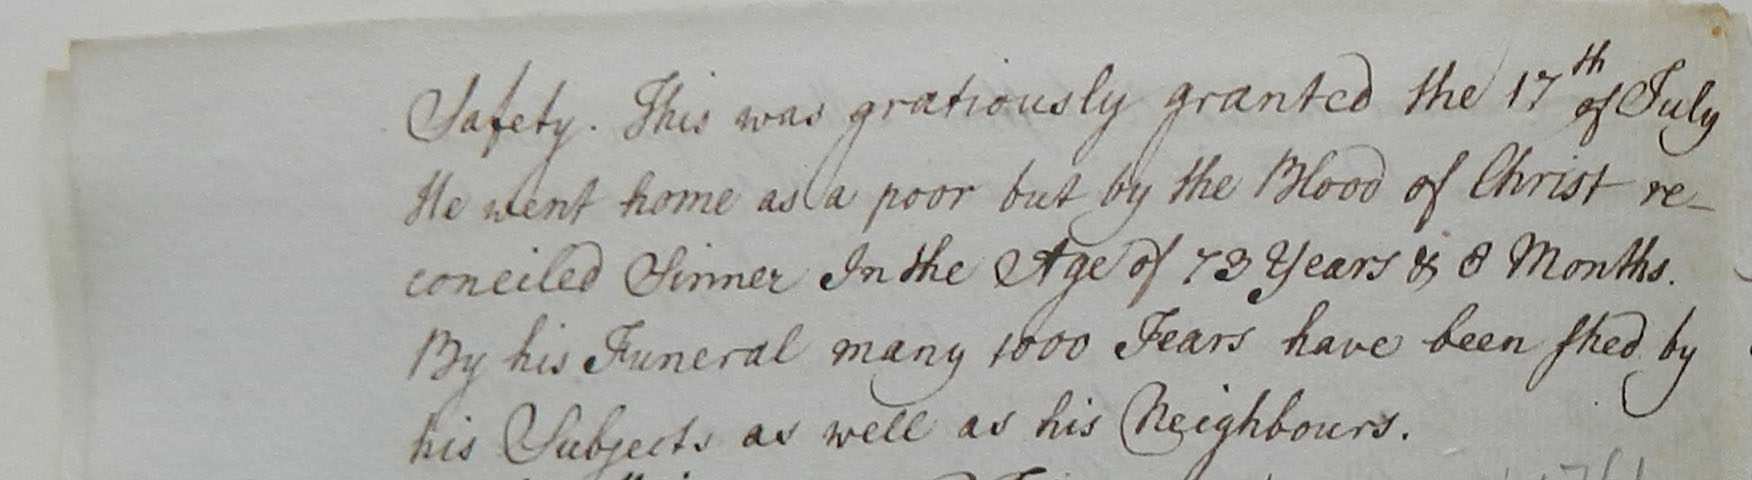 Safety. This was gratiously granted the 17th of July
He went home as a poor but by the Blood of Christ re-
conciled Sinner In the Age of 73 Years & 8 Months.
By his Funeral many 1000 Tears have been shed by
his Subjects as well as his Neighbours.